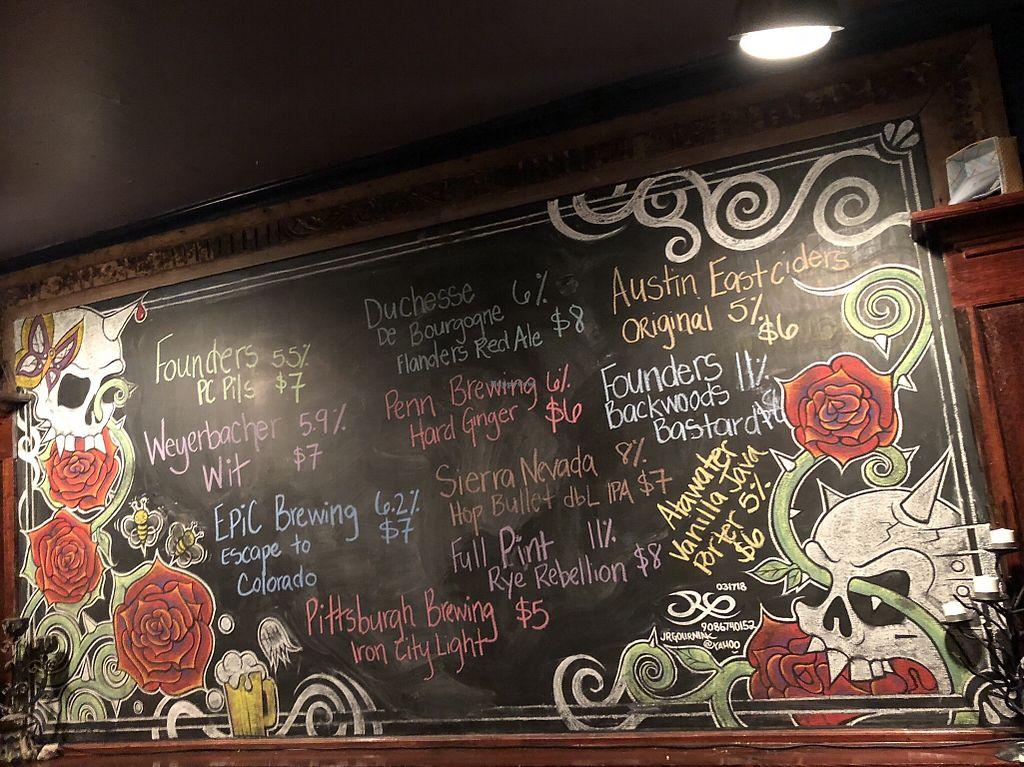 Founders 5.5%
PC Pils $7
Weyerbacher 5.9%
Wit $7
EPiC Brewing 6.2%
Escape to $7
Colorado
Duchesse 6%
De Bourgogne
Flanders Red Ale $8
Penn Brewing 6%
Hard Ginger $6
Sierra Nevada 8%
Hop Bullet dbL IPA $7
Full Pint 11%
Rye Rebellion $8
Pittsburgh Brewing $5
Iron City Light
Austin Eastciders
Original 5%
$6
Founders 11%
Backwoods
Bastard
Atwater
Vanilla Java
Porter 5%
$6
031718
9086740152
JRGOURNINK
@YAHOO